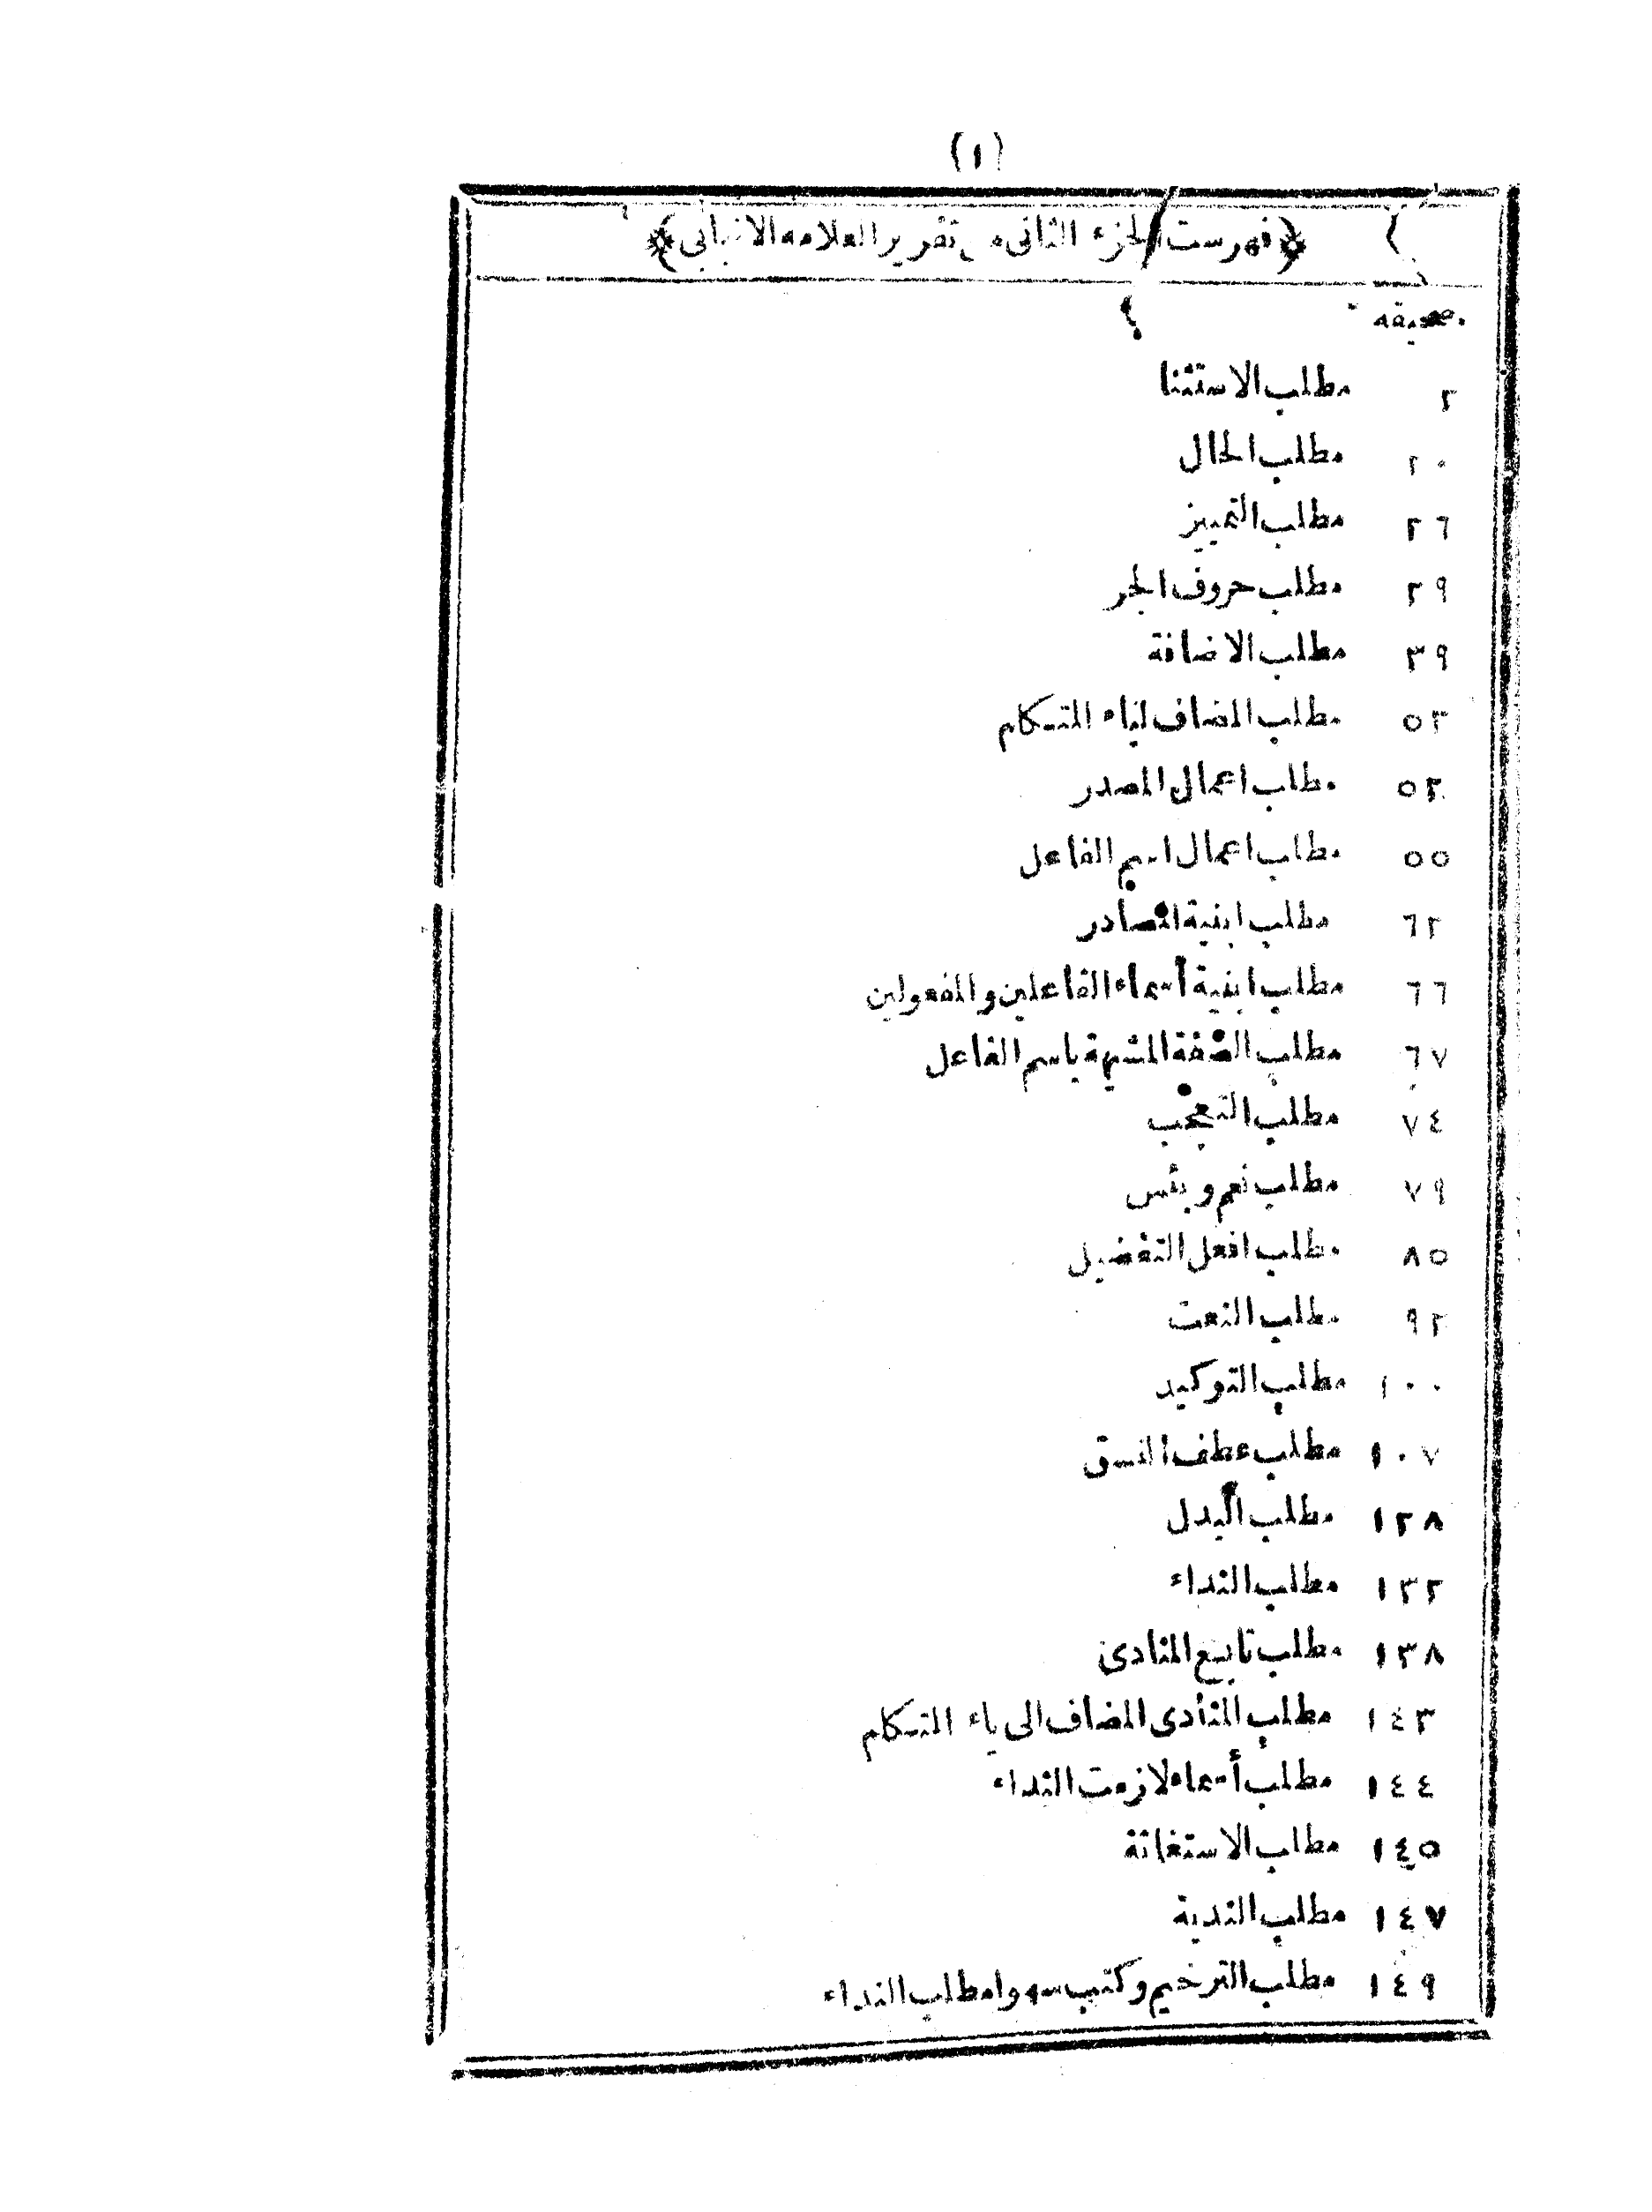 (١)
﴿فهرست الجزء الثانى من تقرير العلامه الانبابي﴾
صحيفه
٢ مطلب الاستثنا
٢٠ مطلب الحال
٢٦ مطلب التمييز
٢٩ مطلب حروف الجر
٣٩ مطلب الاضافة
٥٢ مطلب المضاف لياء المتكلم
٥٣ مطلب اعمال المصدر
٥٥ مطلب اعمال اسم الفاعل
٦٢ مطلب ابنية المصادر
٦٦ مطلب ابنية أسماء الفاعلين والمفعولين
٦٧ مطلب الصفة المشبهة باسم الفاعل
٧٤ مطلب التعجب
٧٩ مطلب نعم وبئس
٨٥ مطلب افعل التفضيل
٩٢ مطلب النعت
١٠٠ مطلب التوكيد
١٠٧ مطلب عطف النسق
١٢٨ مطلب البدل
١٣٢ مطلب النداء
١٣٨ مطلب تابع المنادى
١٤٣ مطلب المنادى المضاف الى ياء المتكلم
١٤٤ مطلب أسماء لازمت النداء
١٤٥ مطلب الاستغاثة
١٤٧ مطلب الندبة
١٤٩ مطلب الترخيم وكتب سهوا مطلب النداء